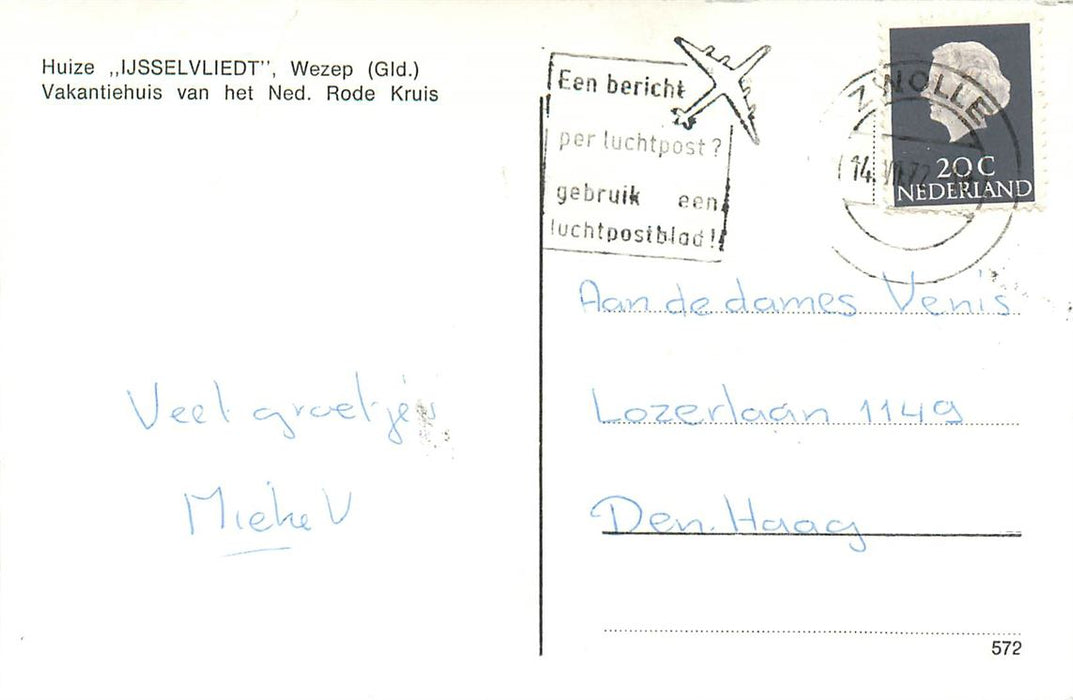 Huize „IJSSELVLIEDT”, Wezep (Gld.)
Vakantiehuis van het Ned. Rode Kruis
Een bericht
per luchtpost?
gebruik een
luchtpostblad!
ZWOLLE
14.VII.72
20 C
NEDERLAND
Veel groetjes
Mieke V
Aan de dames Venis
Lozerlaan 1149
Den Haag
572